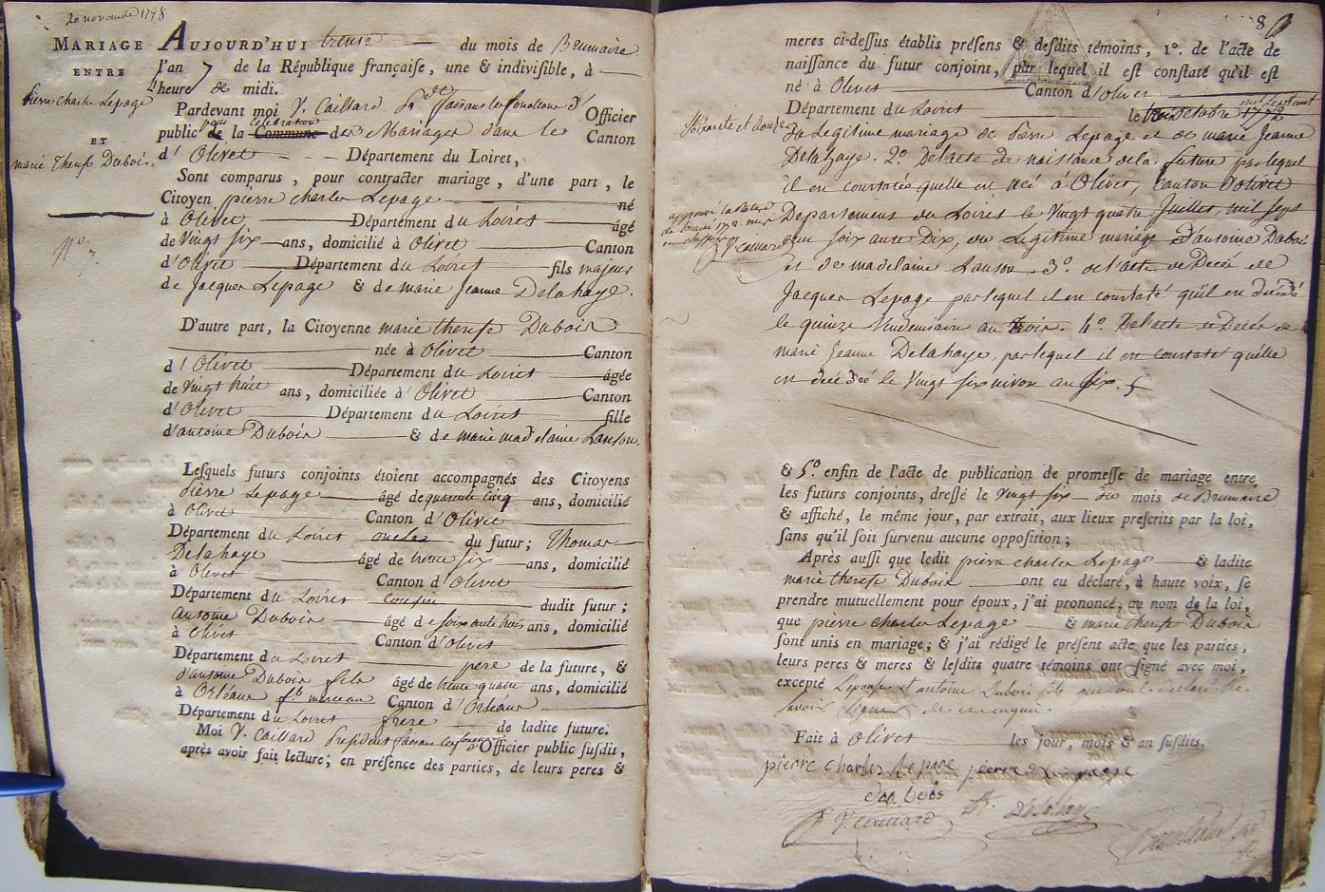 20 novembre 1798
MARIAGE
ENTRE
pierre charles Lepage
ET
marie Therese Dubois.
N.º 7
AUJOURD'HUI trente du mois de Brumaire
l'an 7 de la République françaiſe, une & indiviſible, à
l'heure de midi.
Pardevant moi V. Caillard Officier
public de la Commune des Mariages dans le Canton
d'Olivet Département du Loiret,
Sont comparus, pour contracter mariage, d'une part, le
Citoyen pierre charles Lepage né
à Olivet Département du Loiret âgé
de Vingt six ans, domicilié à Olivet Canton
d'Olivet Département du Loiret fils majeur
de Jacques Lepage & de marie Jeanne Delahaye.
D'autre part, la Citoyenne marie therese Dubois
née à Olivet Canton
d'Olivet Département du Loiret âgée
de Vingt huit ans, domiciliée à Olivet Canton
d'Olivet Département du Loiret fille
d'antoine Dubois & de marie madelaine Lanson.
Leſquels futurs conjoints étoient accompagnés des Citoyens
Pierre Lepage âgé de quarante cinq ans, domicilié
à Olivet Canton d'Olivet
Département du Loiret oncle du futur; Thomas
Delahaye âgé de trente six ans, domicilié
à Olivet Canton d'Olivet
Département du Loiret cousin dudit futur;
antoine Dubois âgé de soixante trois ans, domicilié
à Olivet Canton d'Olivet
Département du Loiret pere de la future, &
d'antoine Dubois fils âgé de trente quatre ans, domicilié
à Orléans Canton d'Orléans
Département du Loiret frere de ladite future.
Moi V. Caillard President faisant les fonctions d'Officier public ſuſdit,
après avoir fait lecture; en préſence des parties, de leurs peres &
8
meres ci-deſſus établis préſens & deſdits témoins, 1º. de l'acte de
naiſſance du futur conjoint, par lequel il eſt conſtaté qu'il eſt
né à Olivet Canton d'Olivet
Département du Loiret le
du Legitime mariage de Lepage et de marie Jeanne
Delahaye. 2º De l'acte de naissance de la future par lequel
il est constaté quelle est née à Olivet, Canton d'olivet
Departement du Loiret le Vingt quatre Juillet mil sept
cent soixante Dix, du Legitime mariage d'antoine Dubois
et de madelaine Lanson. 3º. de l'acte de Decés de
Jacques Lepage par lequel il est constaté qu'il est décédé
le quinze Vendemiaire an trois. 4º. De l'acte de Decés de
marie Jeanne Delahaye, par lequel il est constaté qu'elle
est decédeé le Vingt six nivose an six.
& 5º enfin de l'acte de publication de promeſſe de mariage entre
les futurs conjoints, dreſſé le Vingt six du mois de Brumaire
& affiché, le même jour, par extrait, aux lieux preſcrits par la loi,
ſans qu'il ſoit ſurvenu aucune oppoſition;
Après auſſi que ledit pierre charles Lepage & ladite
marie therese Dubois ont eu déclaré, à haute voix, ſe
prendre mutuellement pour époux, j'ai prononcé, au nom de la loi,
que pierre charles Lepage & marie therese Dubois
ſont unis en mariage; & j'ai rédigé le préſent acte que les parties,
leurs peres & meres & leſdits quatre témoins ont ſigné avec moi,
excepté L'epouse et antoine Dubois fils qui ont declaré ne
savoir signer
Fait à Olivet les jour, mois & an ſuſdits,
pierre charles le page